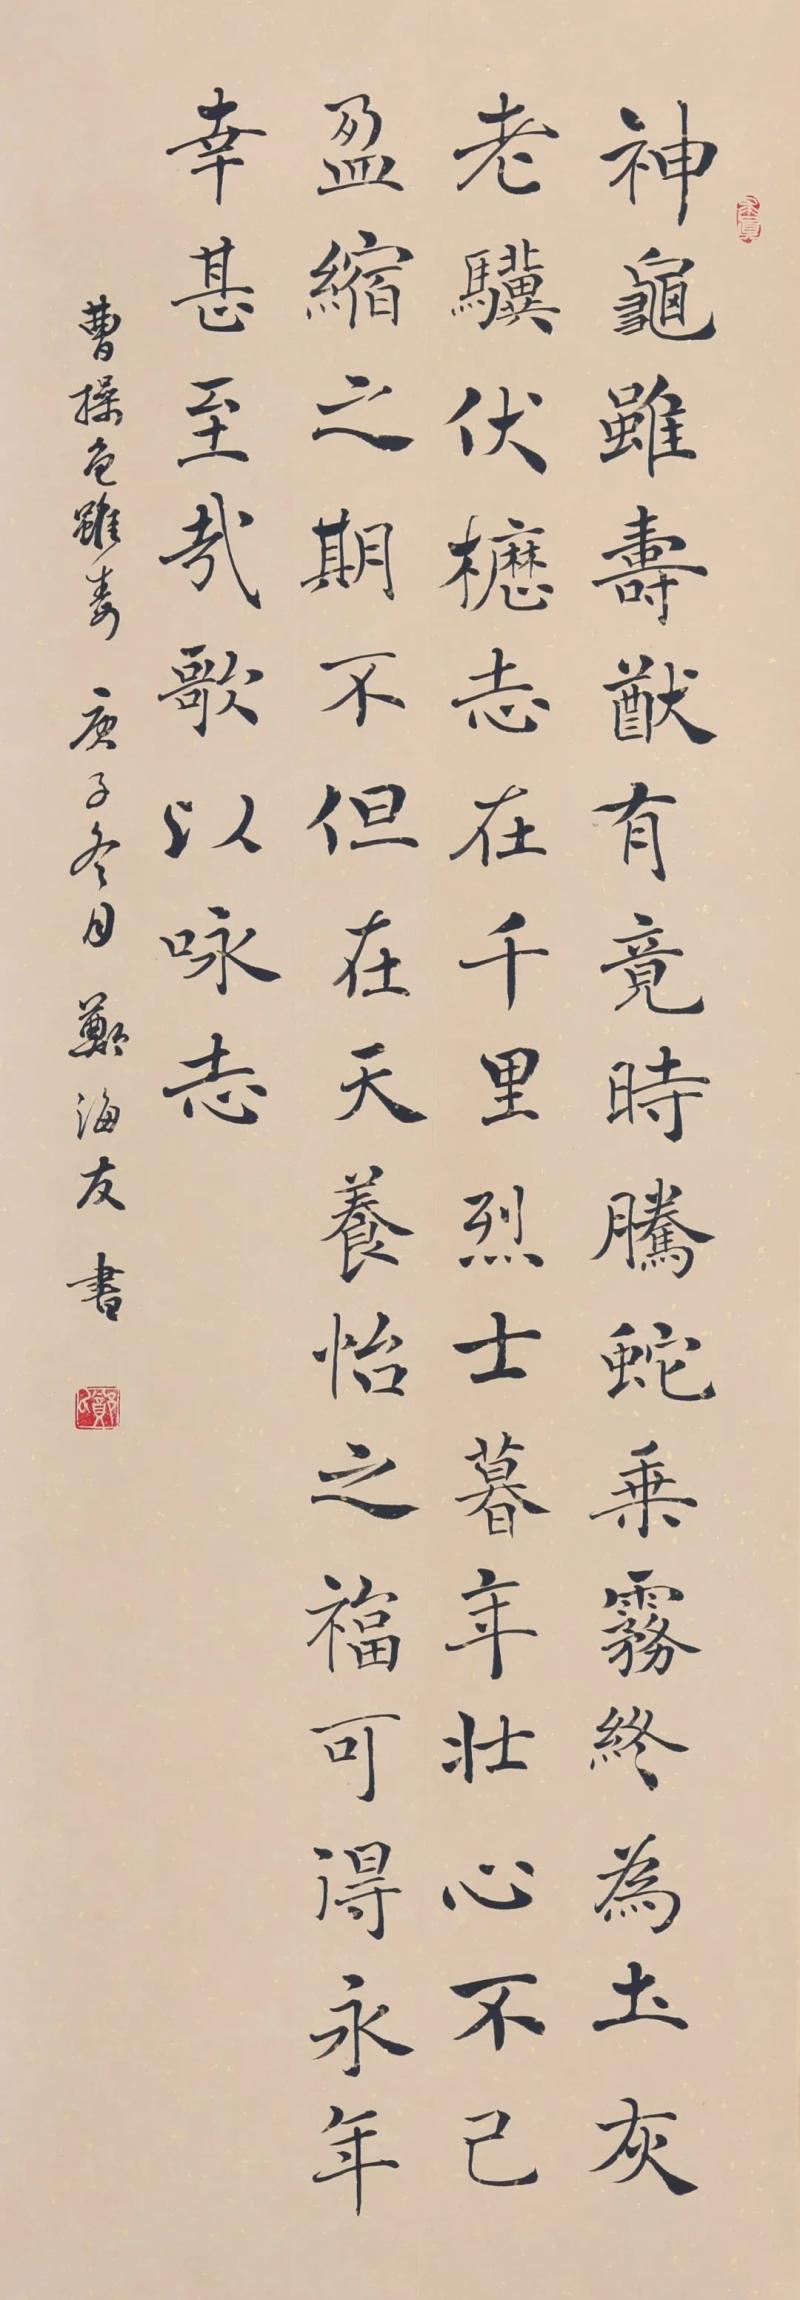 神龜雖壽猷有竟時騰蛇乗霧終為土灰
老驥伏櫪志在千里烈士暮年壯心不已
盈縮之期不但在天養怡之福可得永年
幸甚至哉歌以咏志
曹操龜雖壽 庚子冬月 鄭海友書